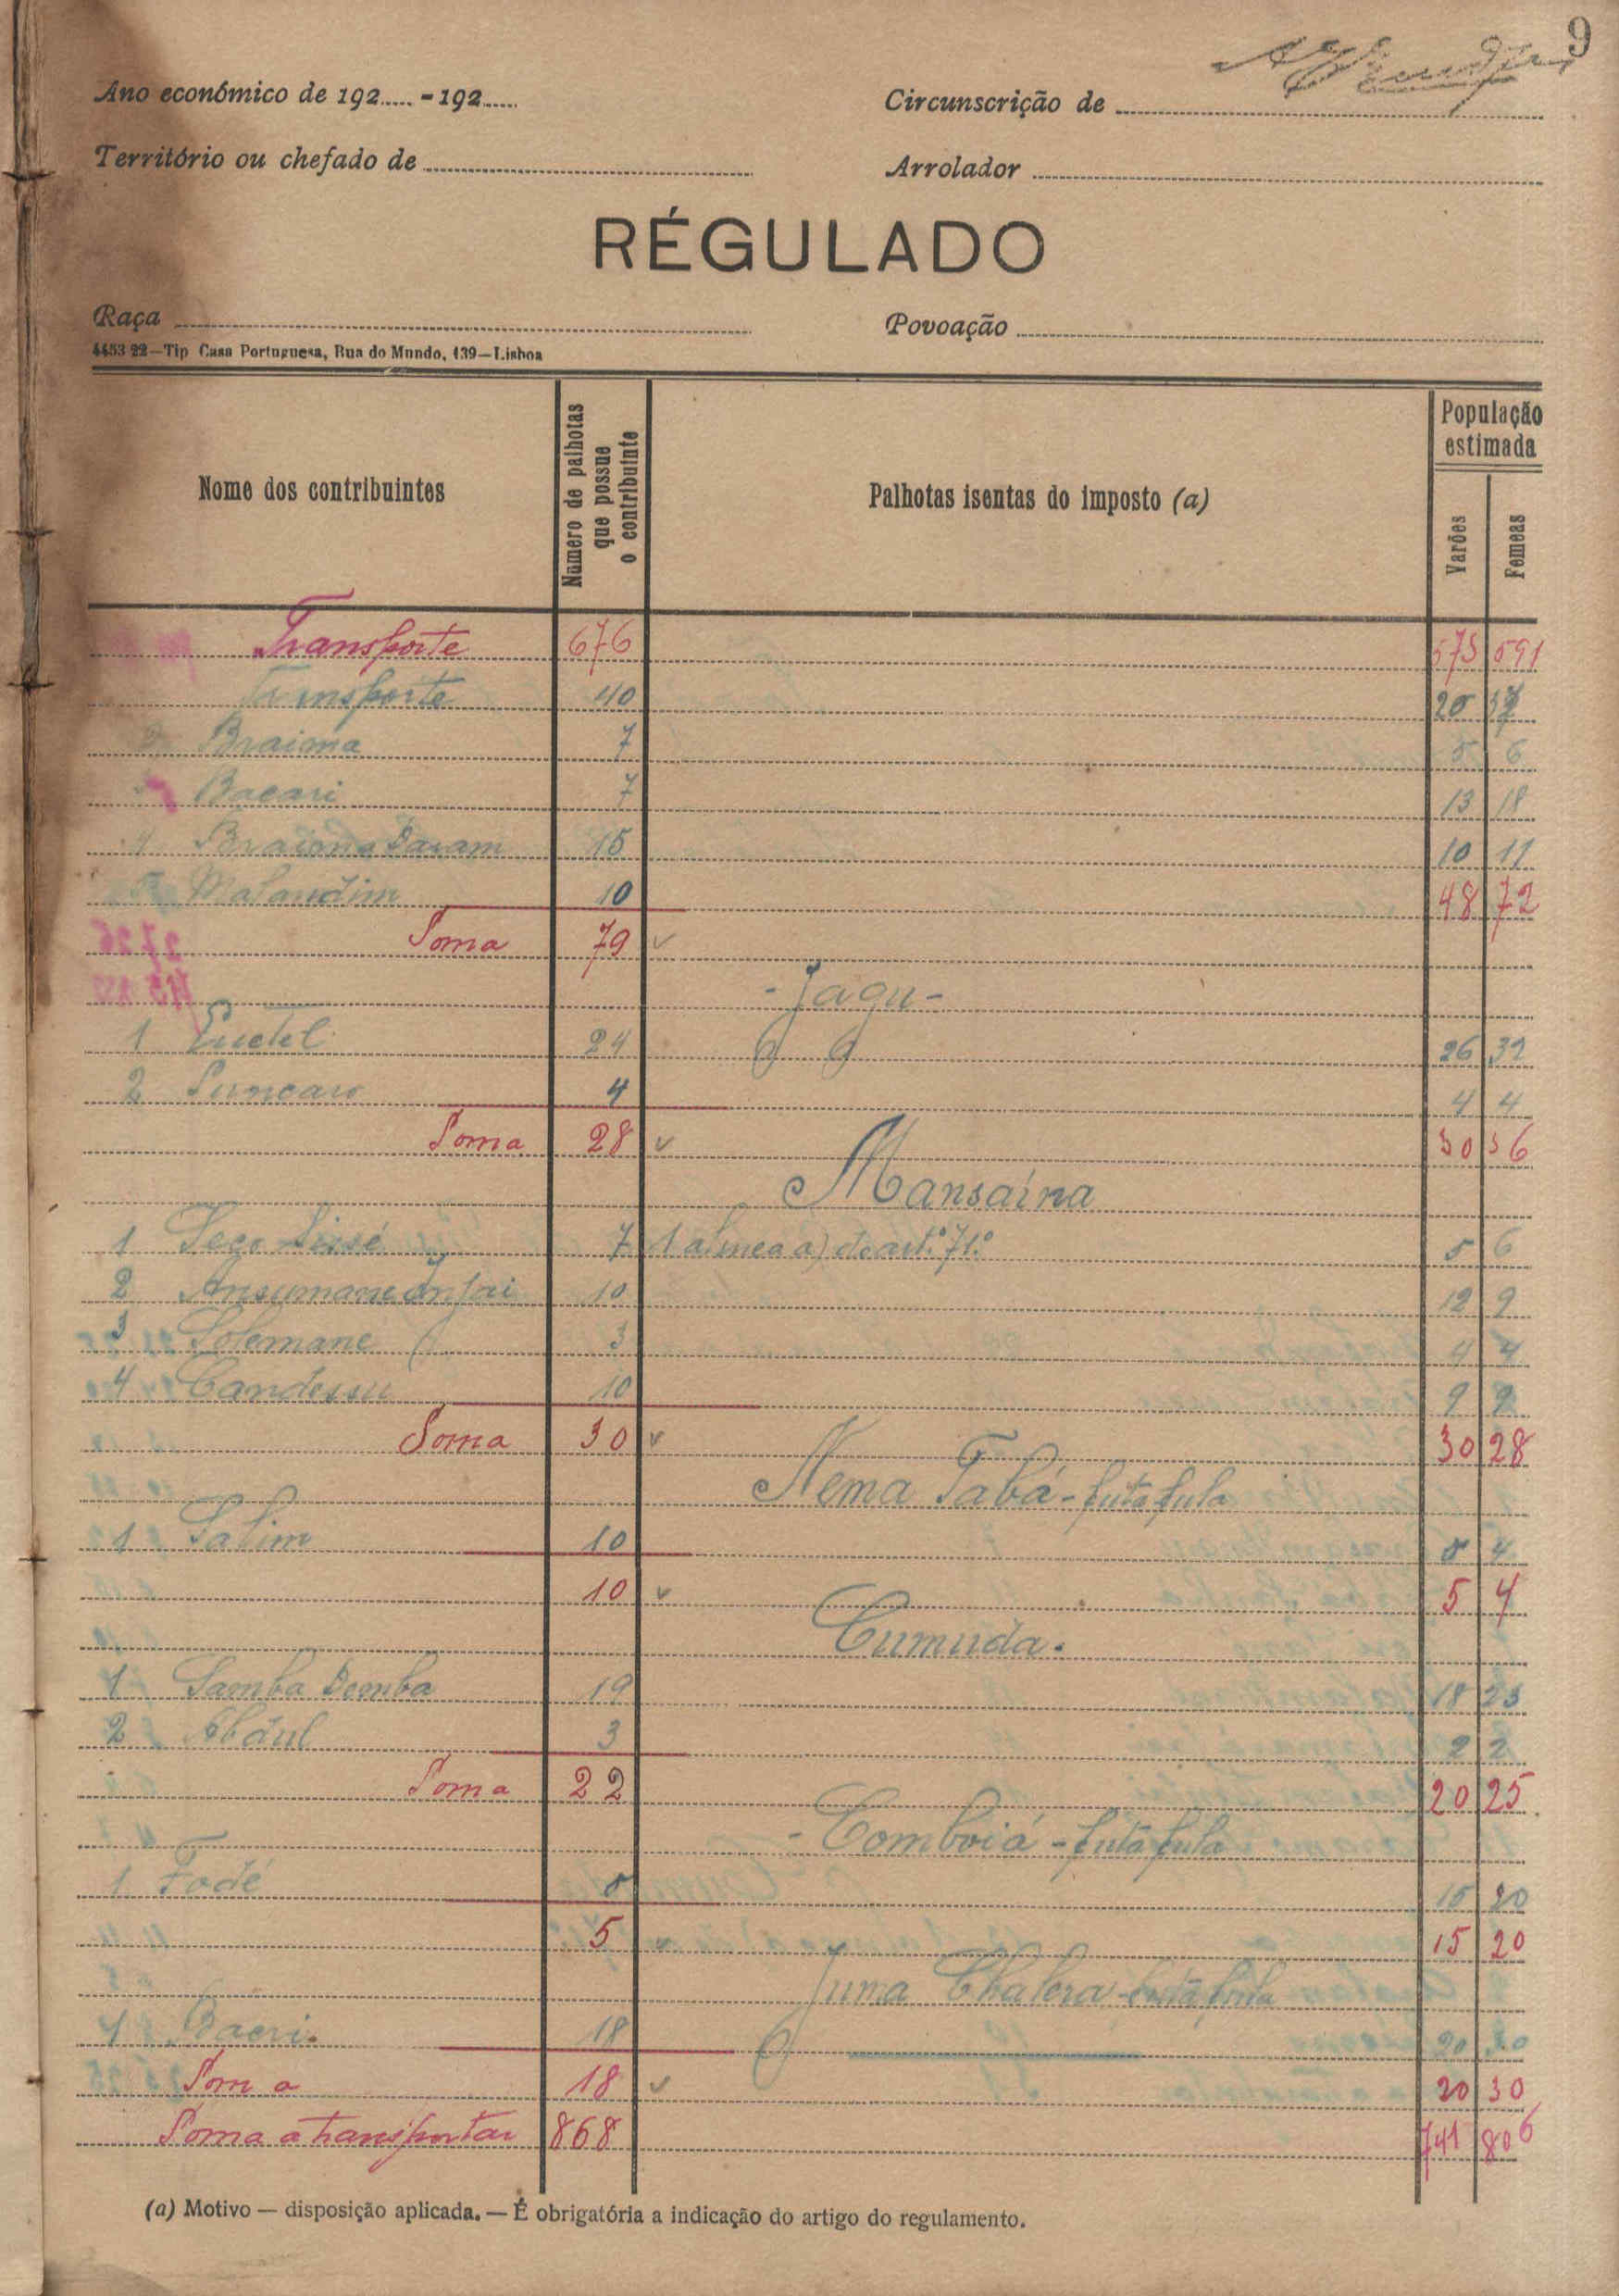 9
Ano económico de 192..... - 192......
Circunscrição de
Território ou chefado de
Arrolador
RÉGULADO
Raça
Povoação
4453 22—Tip Casa Portuguesa, Rua do Mundo, 139—Lisboa
Nome dos contribuintes
Número de palhotas que possue o contribuinte
Palhotas isentas do imposto (a)
População estimada
Varões
Femeas
Transporte 676 573 591
Transporte 40 20
Braima 7 5 6
Bacari 7 13 18
4 Braima Daram 15 10 11
5 Malandim 10 48 72
Soma 79 v
- Jagu -
1 24 26 32
2 Suncaro 4 4 4
Soma 28 v 30 36
Mansaina
1 Seco Sissé 7 1 alinea a) do art.º 71.º 5 6
2 Ansumane Injai 10 12 9
3 Solemane 3 4 4
4 Candessu 10 9 9
Soma 30 v 30 28
Nema Tabá - futa fula
1 Salim 10 5 4
10 v 5 4
Cumuda.
1 Samba Demba 19 18 23
2 Abdul 3 2 2
Soma 22 20 25.
- Comboiá - futa fula
1 Fodé 5 15 20
5 v 15 20
Juma Chalera - futa fula
1 Bacri. 18 20 30
Soma 18 v 20 30
Soma a transportar 868 741 806
(a) Motivo — disposição aplicada. — É obrigatória a indicação do artigo do regulamento.